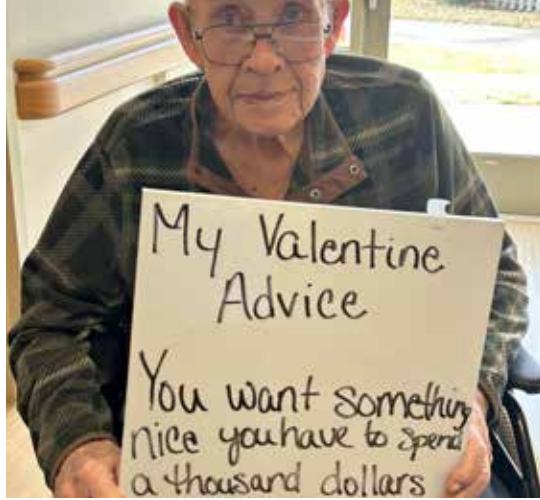 My Valentine
Advice
You want something
nice you have to spend
a thousand dollars